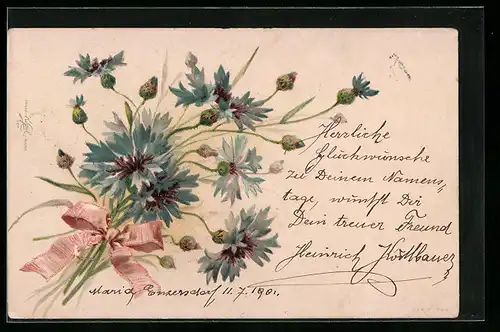 Herrliche
Glückwünsche
zu Deinem Namens-
tage, wünscht Dir
Dein treuer Freund
Heinrich
Maria Enzersdorf 11.7.1901.